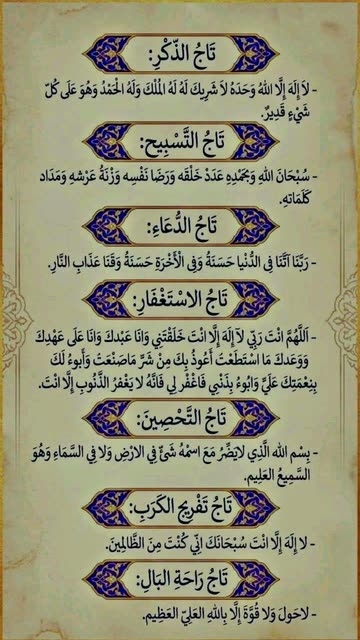 تَاجُ الذِّكْرِ:
- لاَ إِلَهَ إِلَّا اللهُ وَحْدَهُ لاَ شَرِيكَ لَهُ لَهُ المُلْكَ وَلَهُ الْحَمْدُ وَهُوَ عَلَى كُلّ
شَيْءٍ قَدِيرٌ.
تَاجُ التَّسْبِيح:
- سُبْحَانَ اللهِ وَبِحَمْدِهِ عَدَدْ خَلْقَه وَرَضَا نَفْسِه وَزْنَةُ عَرْشِهِ وَمَدَاد
كَلَمَاتهِ.
تَاجُ الدُّعَاءِ:
- رَبَّنَا آتَّنَا فِي الدُّنْيا حَسَنَةً وَفِي الْأَخْرَةِ حَسَنَةً وَقَنَا عَذَابَ النَّارِ.
تَاجُ الاسْتَغْفَارِ:
- اَللَّهُمَّ انْتَ رَبِّي لَآ إِلَهَ إِلَّا انْتَ خَلَقْتَنِي وَانَا عَبْدكَ وَانَا عَلَى عَهْدِكَ
وَوَعَدكَ مَا اسْتَطَعْتَ أَعُوذُ بِكَ مِنْ شَرَّ مَاصَنَعَتْ وَأَبوءُ لَكَ
بِنِعْمَتِكَ عَلَيَّ وَابُوءُ بِذَنْبِي فَاغْفُر لِي فَانَّهُ لَا يَغْفرُ الذَّنُوبَ إِلَّا انْتَ.
تَاجُ التَّحْصِينَ:
- بِسْم الله الَّذِي لاَيَضُّرُ مَعَ اسْمُهُ شَئٌ فِي الارْضِ وَلا فِي السَّمَاءِ وَهُوَ
السَّمِيعُ العَلِيم.
تَاجُ تَفْرِيج الكَرَبِ:
- لا إِلَهَ إِلَّا انْتَ سُبْحَانَكَ انِّي كُنْتَ مِنَ الظَّالِمِينَ.
تَاجُ رَاحَةِ البَالِ:
- لاحَولَ وَلا قُوَةَ إِلَّا بِاللهِ العَلِيّ العَظِيم.